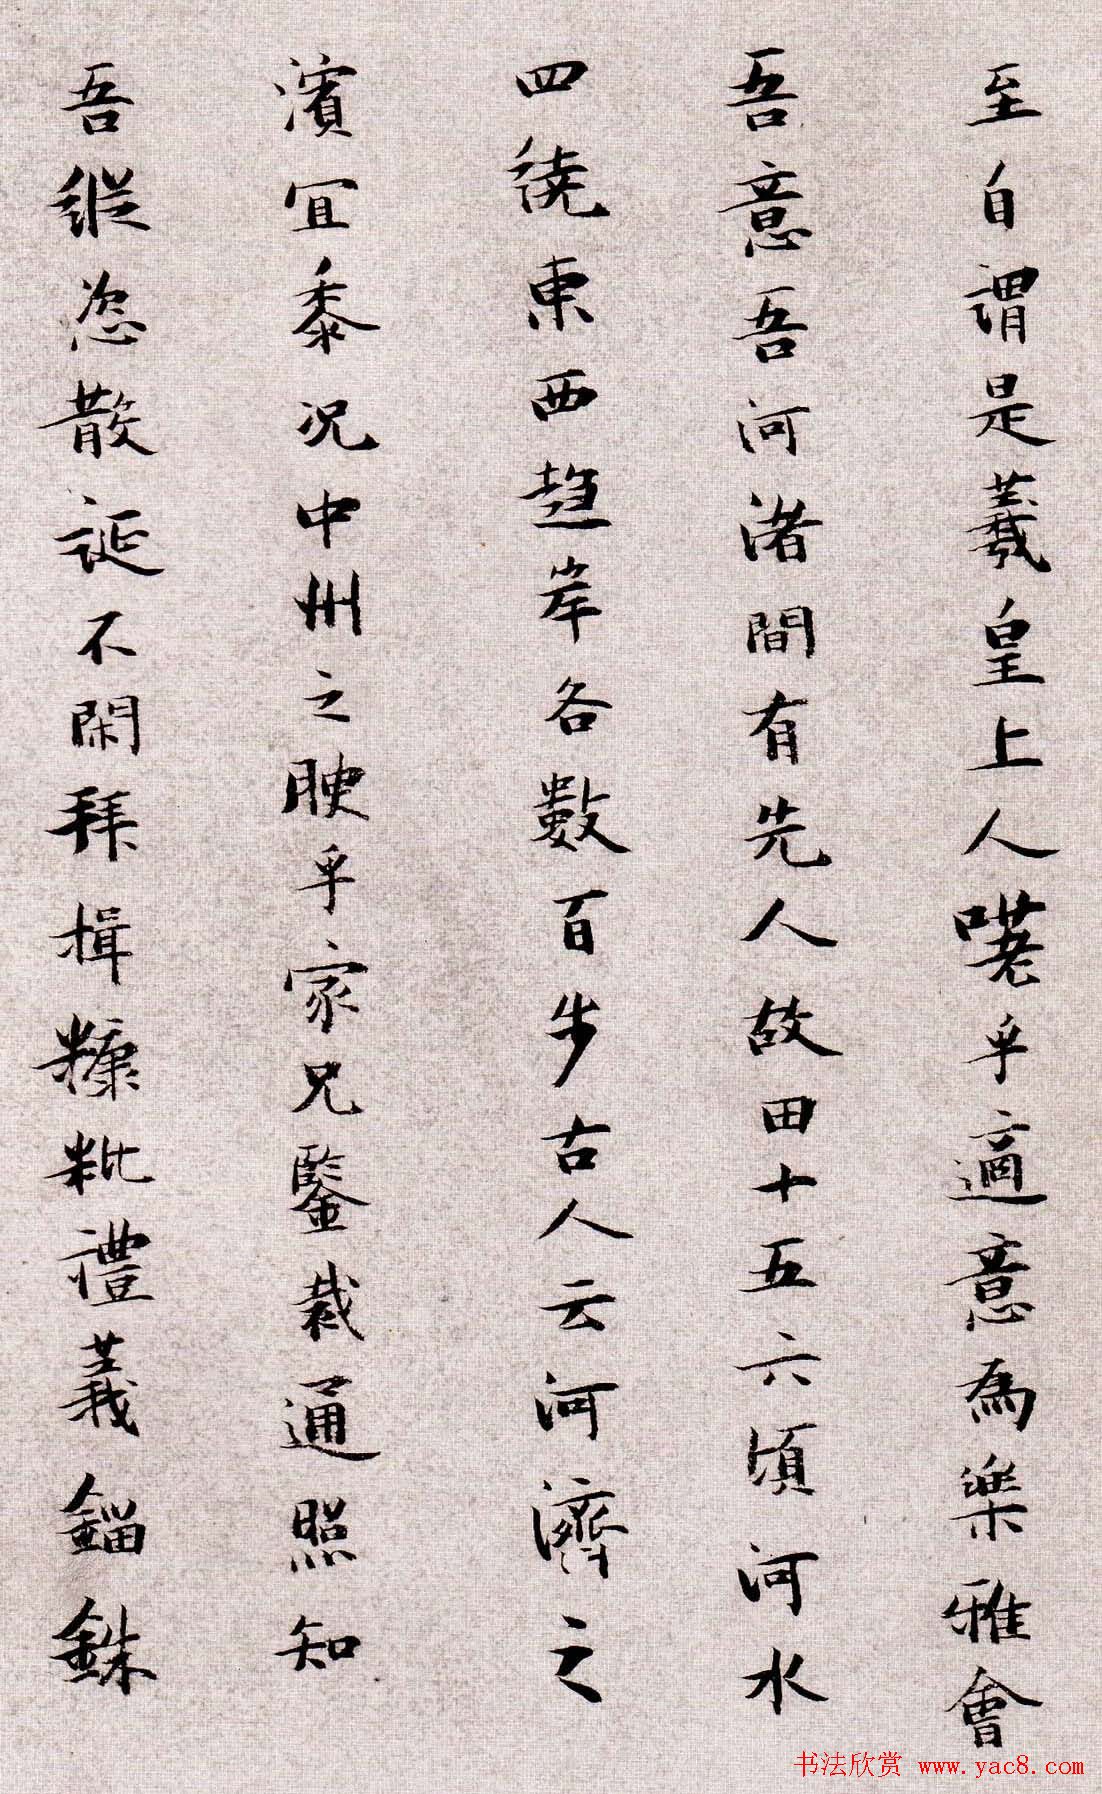 至自謂是羲皇上人嗟乎適意為樂雅會
吾意吾河渚間有先人故田十五六頃河水
四繞東西趍岸各數百步古人云河濟之
濱宜黍況中州之腴乎家兄鑒裁通照知
吾縱恣散誕不閑拜揖糠粃禮義錙銖
书法欣赏 www.yac8.com